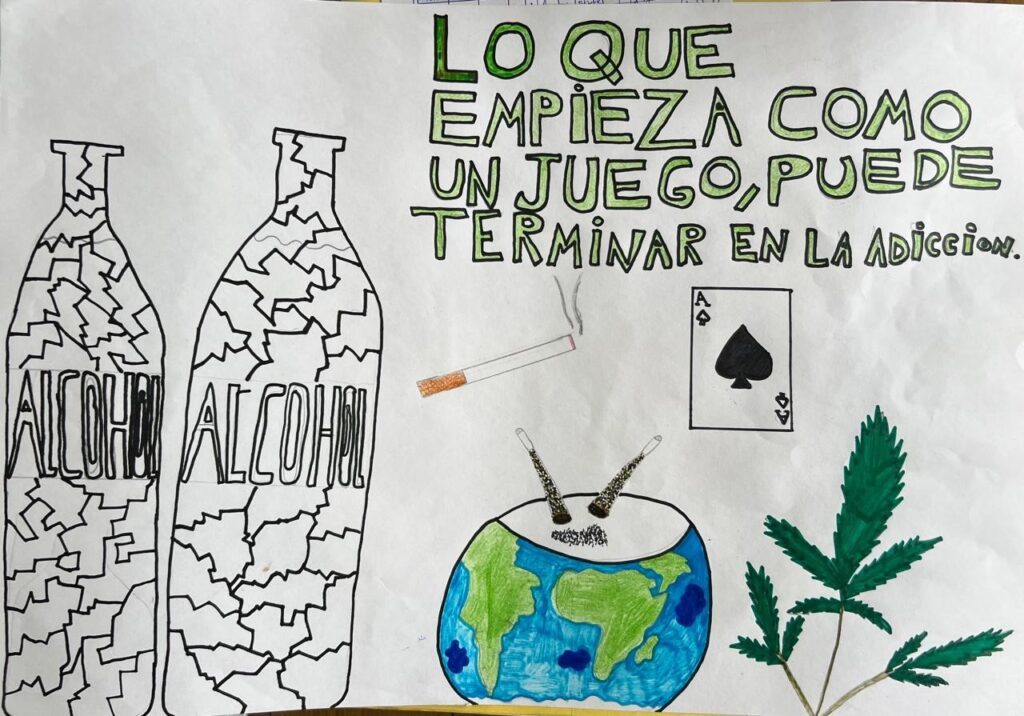 LO QUE
EMPIEZA COMO
UN JUEGO, PUEDE
TERMINAR EN LA ADICCION.
ALCOHOL
ALCOHOL
A
A